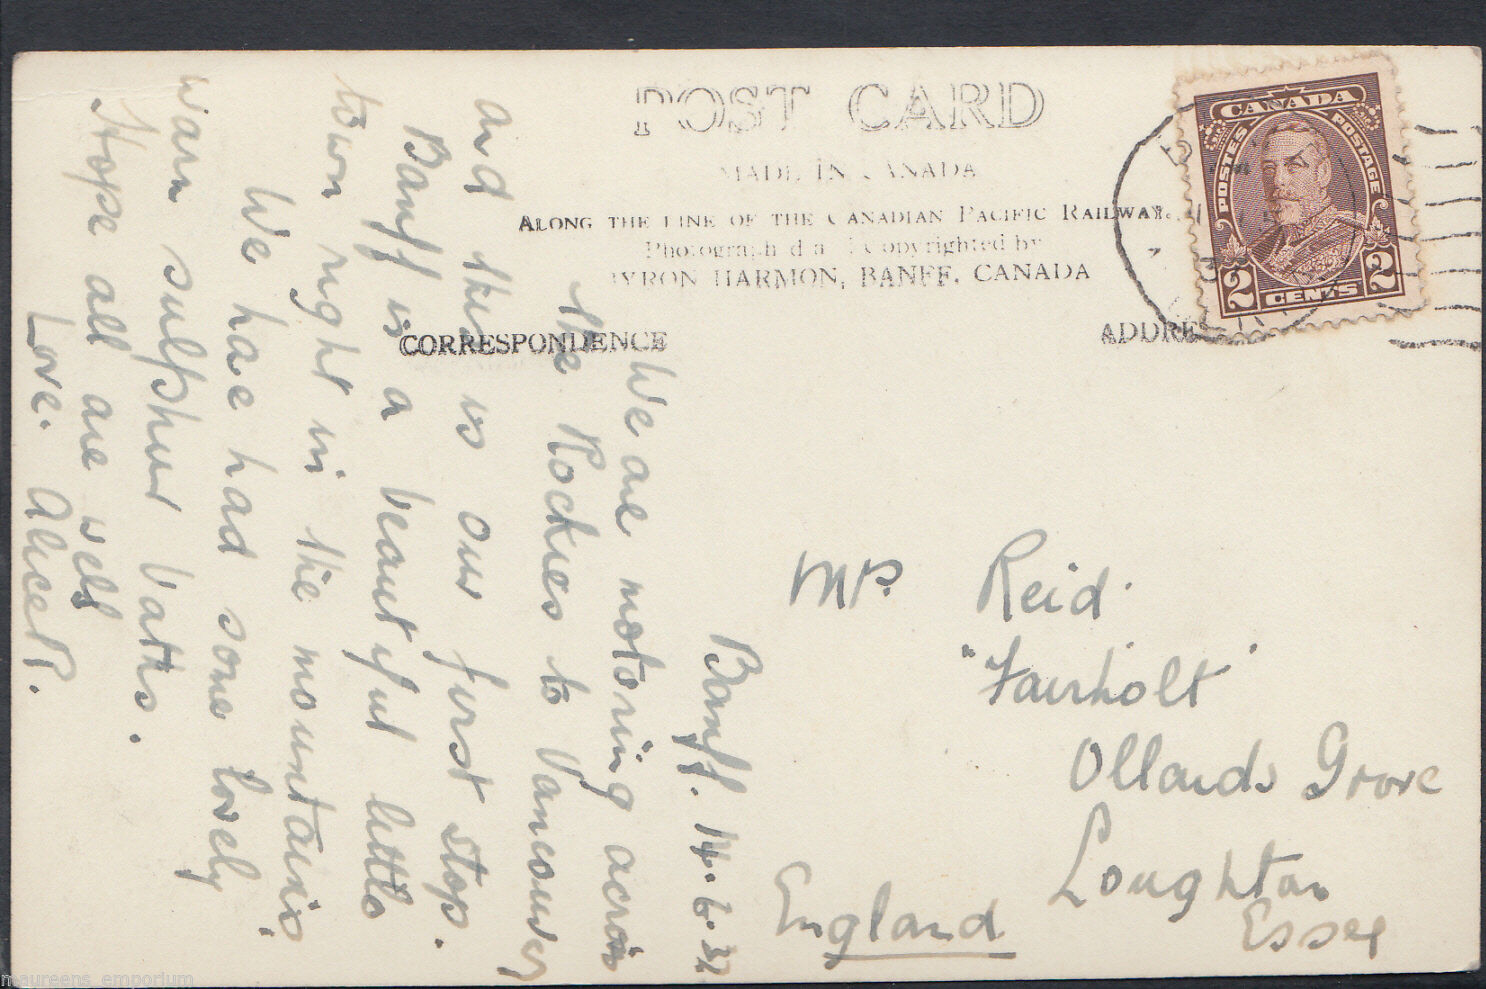 POST CARD
MADE IN CANADA
ALONG THE LINE OF THE CANADIAN PACIFIC RAILWAY
Photographed and Copyrighted by
BYRON HARMON, BANFF, CANADA
CORRESPONDENCE
ADDRE
CANADA
POSTES POSTAGE
2 CENTS 2
Banff. 14.6.
We are motoring across
the Rockies to Vancouver
and this is our first stop.
Banff is a beautiful little
town right in the mountains.
We have had some lovely
warm sulphur baths.
Hope all are well
Love. Alice P.
Mrs. Reid.
"Fairholt"
Ollards Grove
Loughton
Essex
England
maureens_emporium